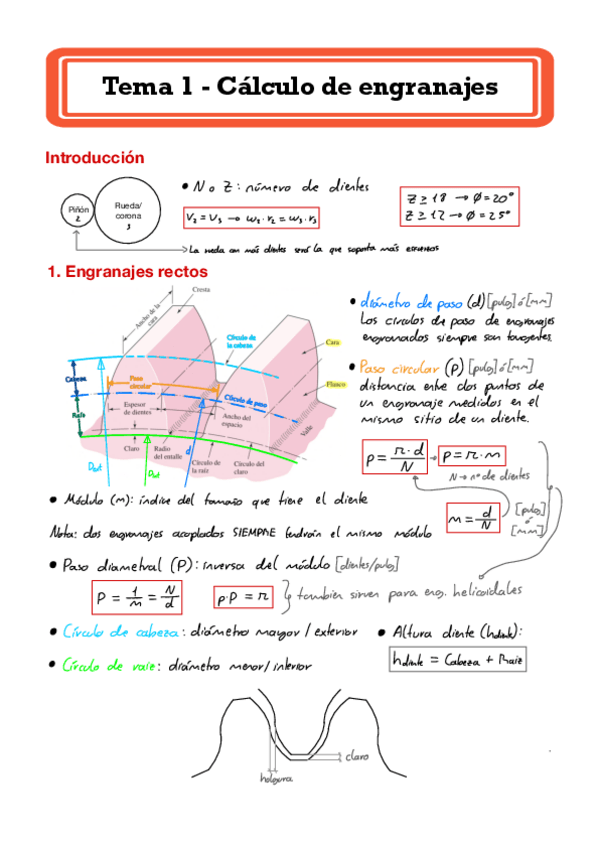 Tema 1 - Cálculo de engranajes
Introducción
Piñón
2
Rueda/
corona
3
• N o Z: número de dientes
V₂ = V₃ → ω₂·r₂ = ω₃·r₃
Z ≥ 18 → Ø = 20°
Z ≥ 12 → Ø = 25°
La rueda con más dientes será la que soporta más esfuerzos
1. Engranajes rectos
Cresta
Ancho de la
cara
Círculo de
la cabeza
Cara
Cabeza
Paso
circular
Flanco
Círculo de paso
Raíz
Espesor
de dientes
Ancho del
espacio
Valle
Claro
Radio
del entalle
d
Círculo de
la raíz
Círculo del
claro
• diámetro de paso (d) [pulg] ó [mm]
Los círculos de paso de engranajes
engranados siempre son tangentes.
• Paso circular (p) [pulg] ó [mm]
distancia entre dos puntos de
un engranaje medidos en el
mismo sitio de un diente.
p = π·d / N → p = π·m
N → nº de dientes
• Módulo (m): índice del tamaño que tiene el diente
m = d / N
[pulg]
ó
[mm]
Nota: dos engranajes acoplados SIEMPRE tendrán el mismo módulo
• Paso diametral (P): inversa del módulo [dientes/pulg]
P = 1/m = N/d
p·P = π
también sirven para eng. helicoidales
• Círculo de cabeza: diámetro mayor / exterior
• Altura diente (hdiente):
• Círculo de raíz: diámetro menor / interior
hdiente = Cabeza + Raíz
claro
holgura